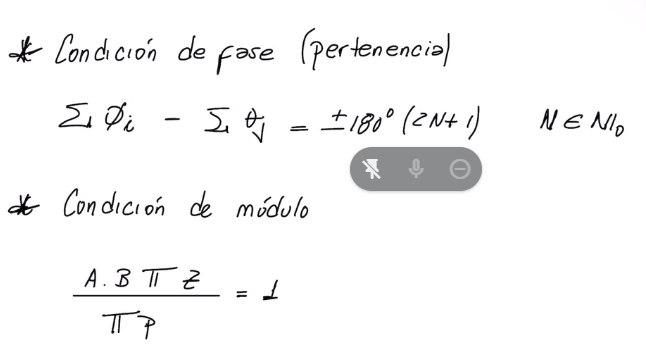 * Condición de fase (pertenencia)
Σ Øi - Σ θj = ±180° (2N+1) N ∈ ℕ0
* Condición de módulo
A.B π Z
_____ = 1
π P